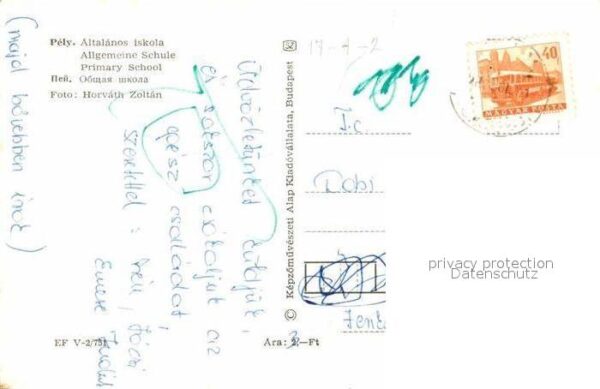 Pély. Általános iskola
Allgemeine Schule
Primary School
Пей. Общая школа
Foto: Horváth Zoltán
(majd bővebben írok)
Üdvözletünket küldjük,
és sokszor csókoljuk az
egész családot,
szeretettel: Béni, Józsi
Emese Judit
Képzőművészeti Alap Kiadóvállalata, Budapest
©
17-4-2
40
MAGYAR POSTA
I.c.
Dobi
Jent
privacy protection
Datenschutz
EF V-2/731
Ára: 3,-Ft